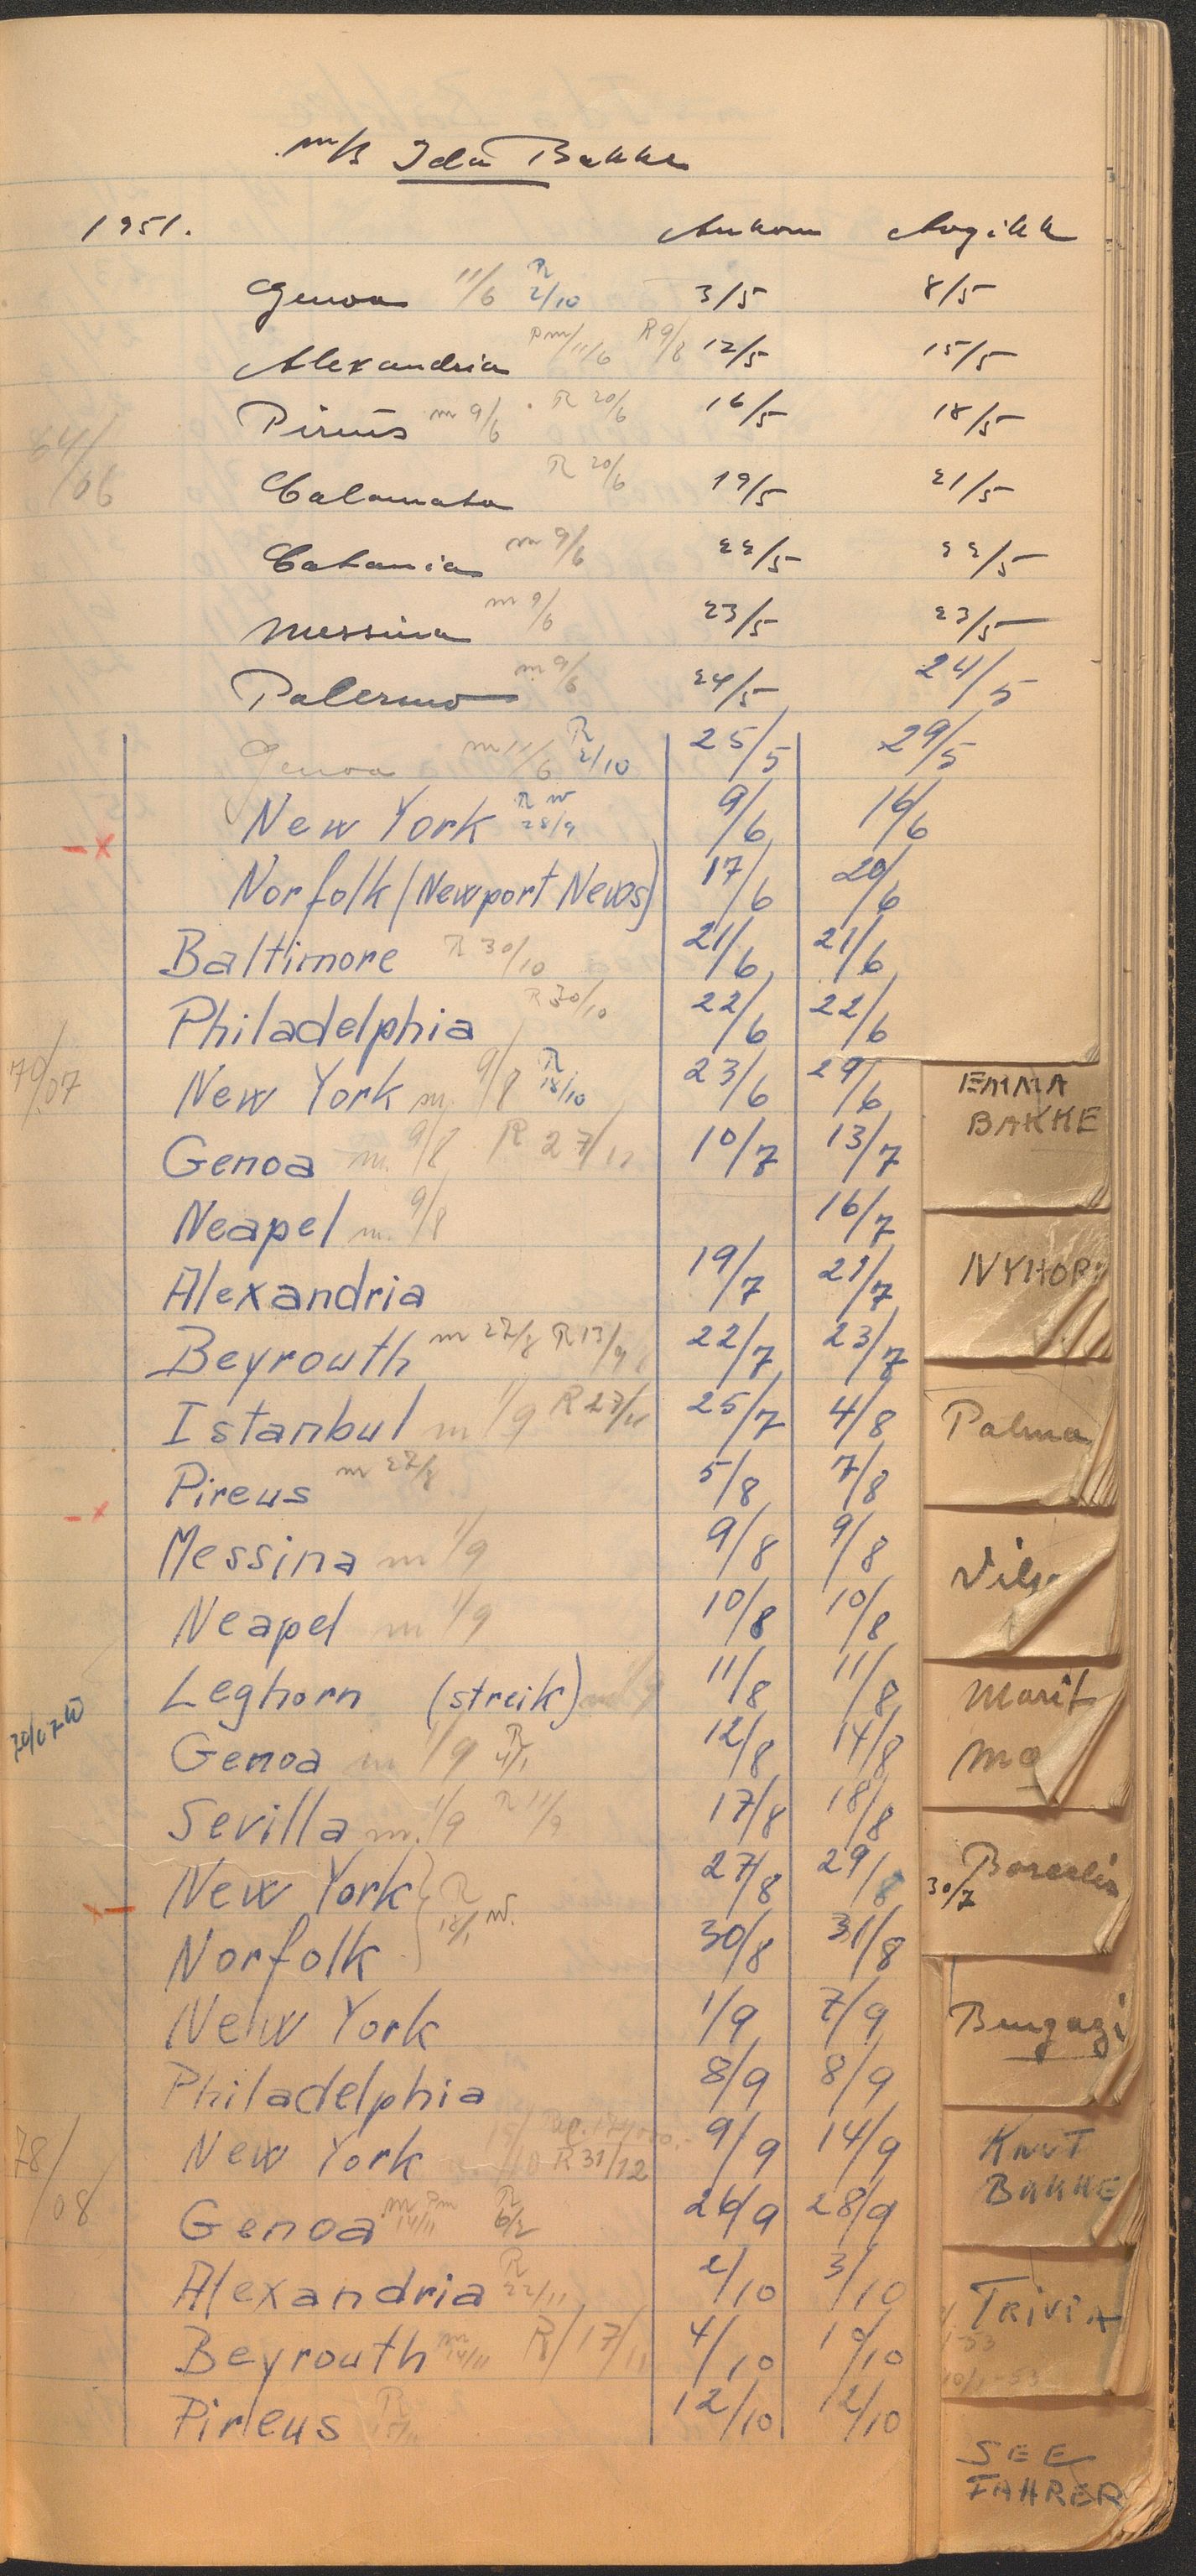 m/s Ida Bakke
1951. Ankom Avgikk
Genoa 11/6 R 2/10 3/5 8/5
Alexandria Pm 11/6 R 9/8 12/5 15/5
Pireus m 9/6 R 20/6 16/5 18/5
64/06
Calamata R 20/6 19/5 21/5
Catania m 9/6 22/5 22/5
Messina m 9/6 23/5 23/5
Palermo m 9/6 24/5 24/5
Genoa m 11/6 R 2/10 25/5 29/5
New York R 28/9 9/6 16/6
- x
Norfolk (Newport News) 17/6 20/6
Baltimore R 30/10 21/6 21/6
Philadelphia R 30/10 22/6 22/6
70/07 New York m. 9/8 R 18/10 23/6 29/6
Genoa m. 9/8 R 27/11 10/7 13/7
Neapel m. 9/8 16/7
Alexandria 19/7 21/7
Beyrouth m 27/8 R 13/9 22/7 23/7
Istanbul m 1/9 R 27/11 25/7 4/8
Pireus m 27/8 5/8 7/8
- x
Messina m 1/9 9/8 9/8
Neapel m 1/9 10/8 10/8
Leghorn (streik) m 1/9 11/8 11/8
Genoa m 1/9 R 4/1 12/8 14/8
Sevilla m. 1/9 R 11/9 17/8 18/8
New York } R 18/1 27/8 29/8
x -
Norfolk 30/8 31/8
New York 1/9 7/9
Philadelphia 8/9 8/9
New York R 31/12 9/9 14/9
78/08
Genoa m Pm 14/11 R 6/2 26/9 28/9
Alexandria R 22/11 2/10 3/10
Beyrouth m 14/11 R/17/11 4/10 10/10
Pireus R 15/11 12/10 12/10
EMMA
BAKKE
NYHOR
Palma
Vils
Marit
Ma
30/7
Bengazi
KNUT
BAKKE
TRIVIA
10/1-53
SEE
FAHRER